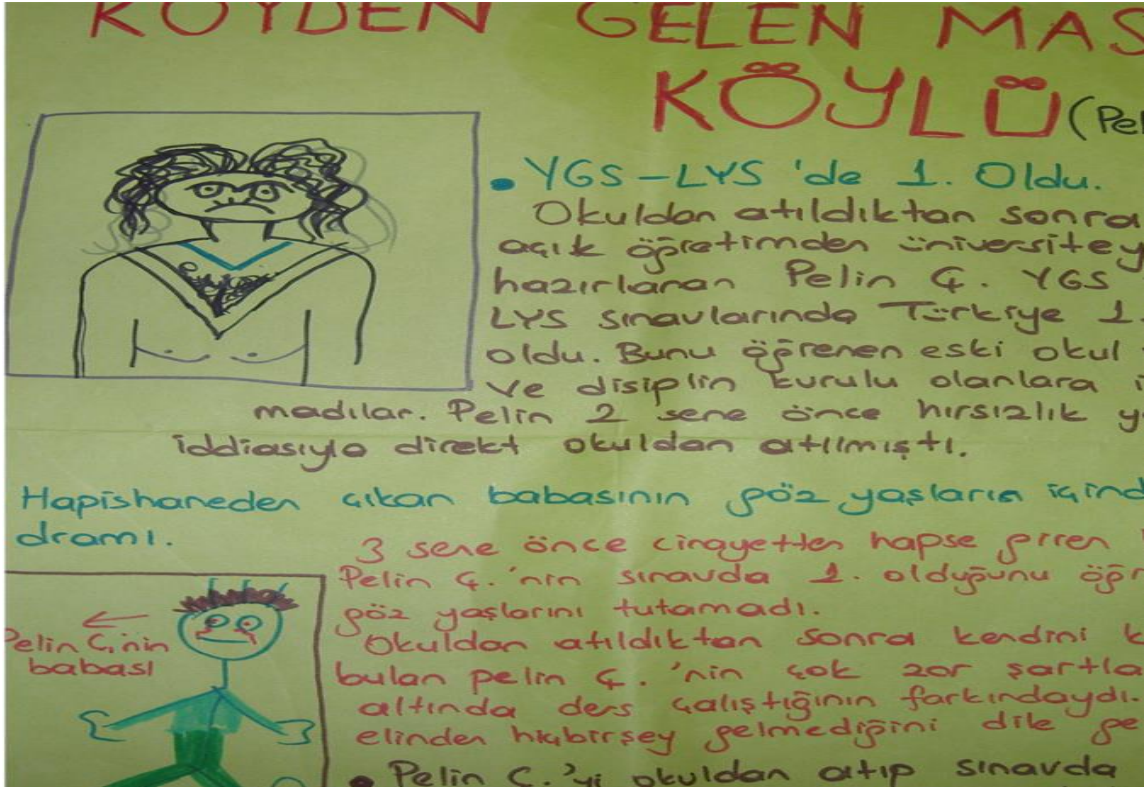 KÖYDEN GELEN MAS
KÖYLÜ (Pel
• YGS-LYS 'de 1. Oldu.
Okuldan atıldıktan sonra
açık öğretimden üniversitey
hazırlanan Pelin Ç. YGS
LYS sınavlarında Türkiye 1.
oldu. Bunu öğrenen eski okul
ve disiplin kurulu olanlara i
madılar. Pelin 2 sene önce hırsızlık y
iddiasıyla direkt okuldan atılmıştı.
Hapishaneden çıkan babasının göz yaşların içind
dramı.
3 sene önce cinayetten hapse giren
Pelin Ç.'nin sınavda 1. olduğunu öğr
göz yaşlarını tutamadı.
Pelin Ç.'nin
babası
Okuldan atıldıktan sonra kendini
bulan pelin Ç.'nin çok zor şartla
altında ders çalıştığının farkındaydı.
elinden hiçbirşey gelmediğini dile ge
• Pelin Ç.'yi okuldan atıp sınavda